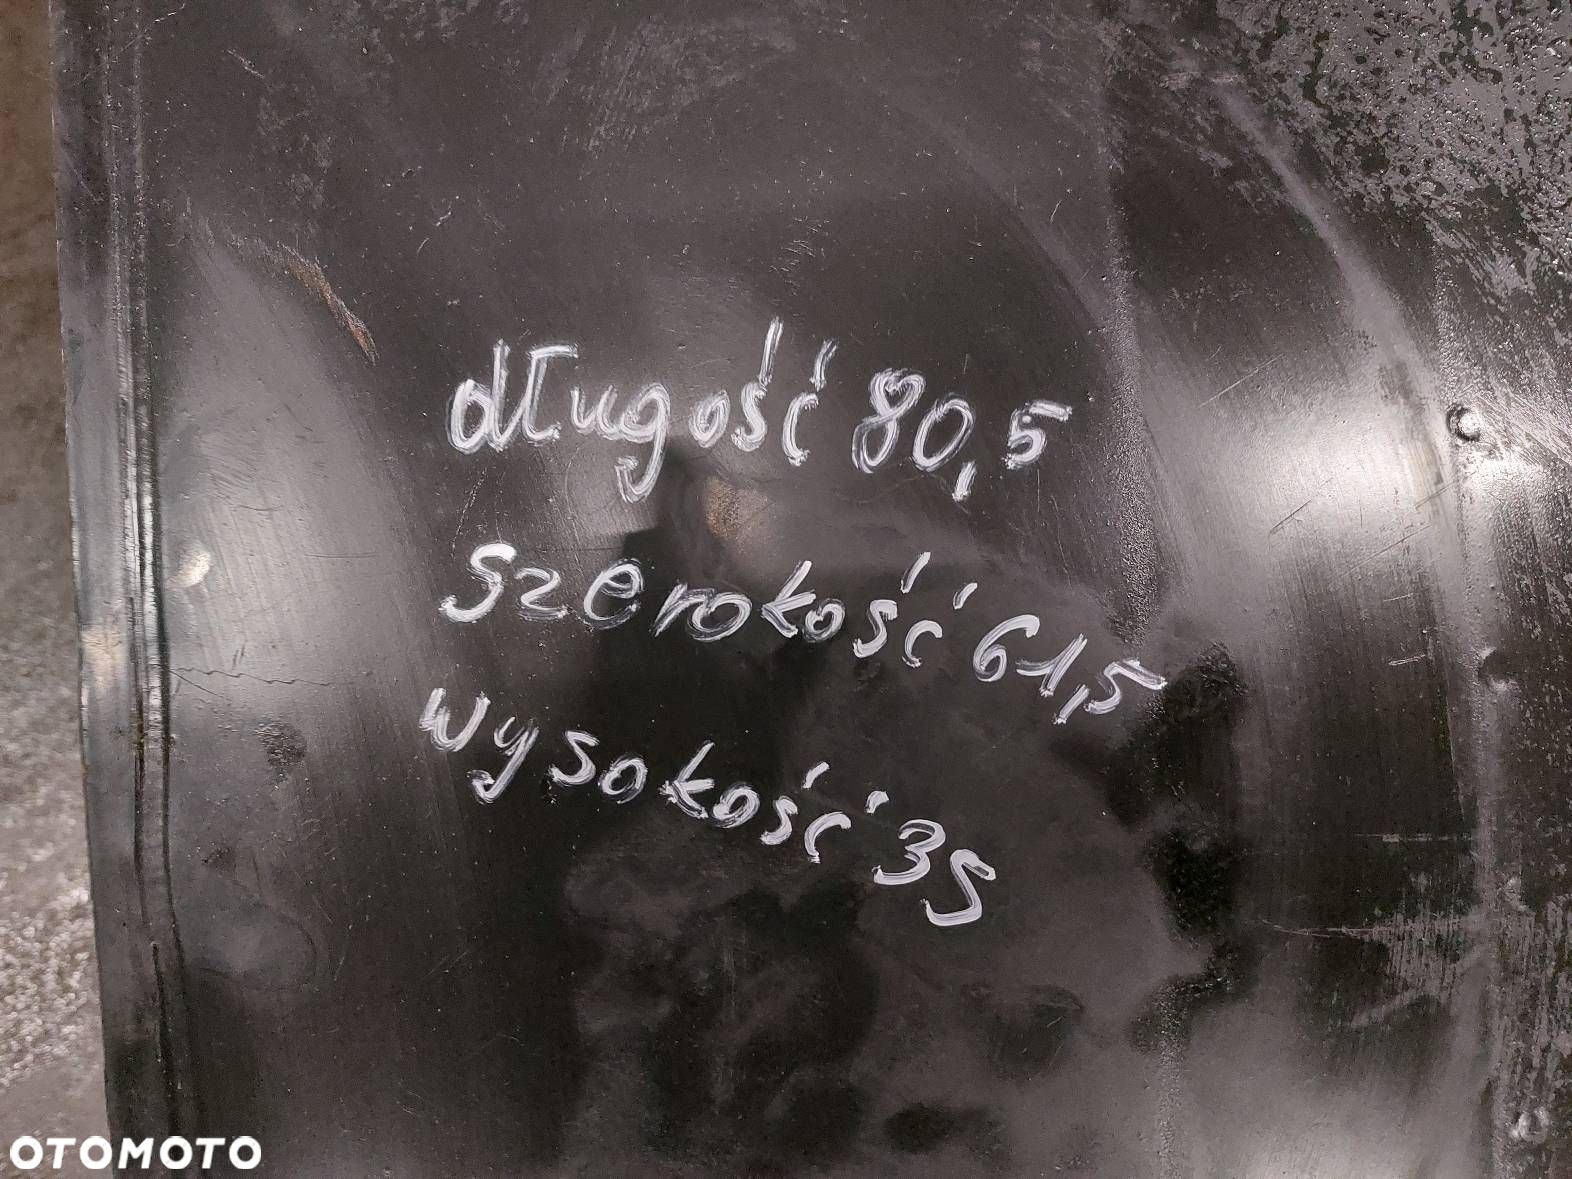 długość 80,5
szerokość 61,5
wysokość 35
OTOMOTO